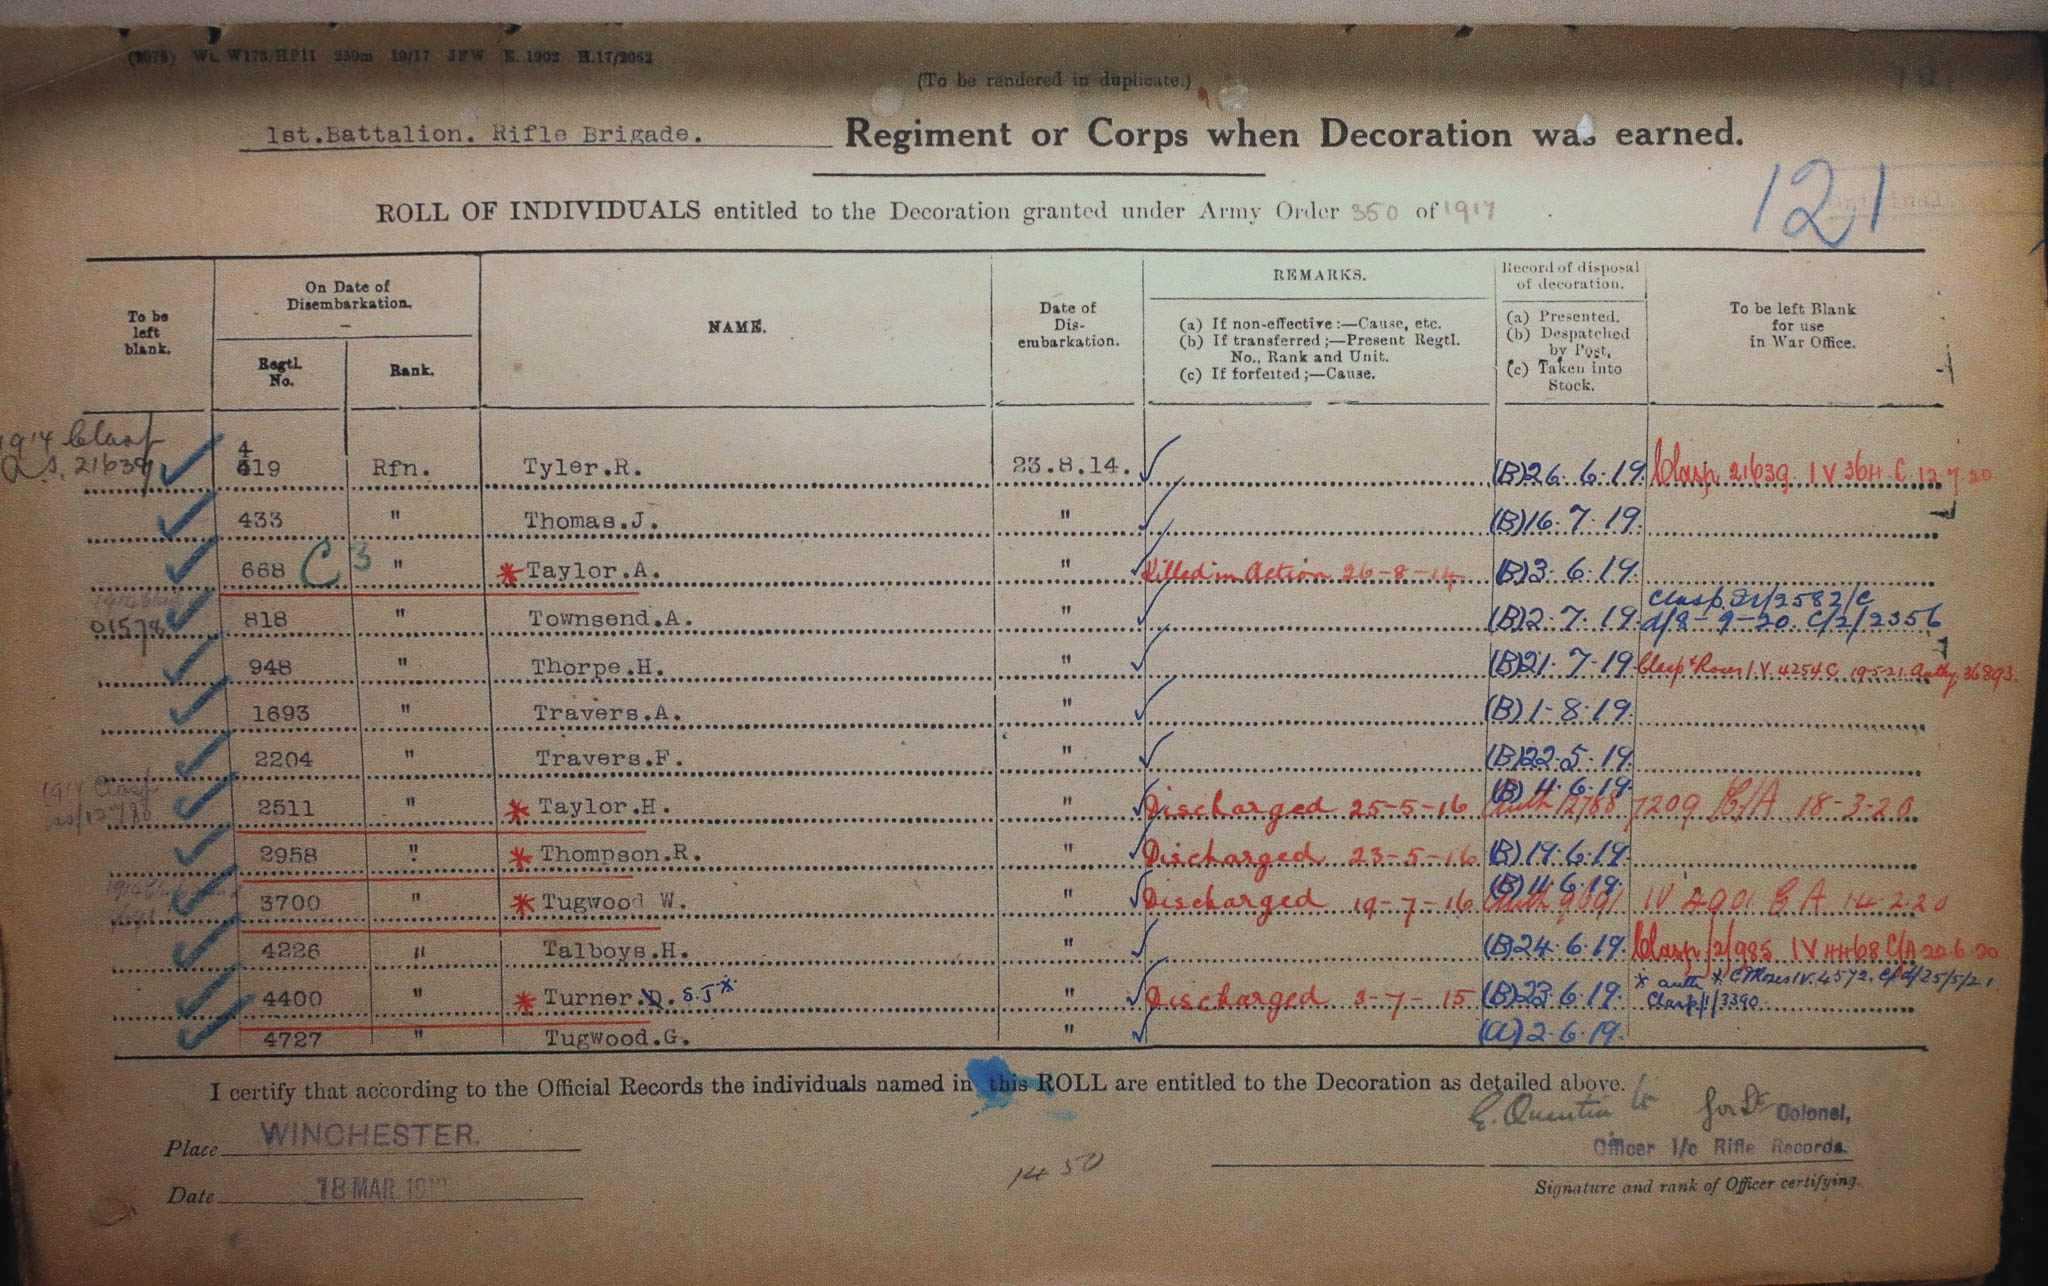 (2075) Wt. W175/HP11 250m 10/17 JFW E. 1902 H.17/2062
(To be rendered in duplicate.)
1st.Battalion. Rifle Brigade. Regiment or Corps when Decoration was earned.
121
ROLL OF INDIVIDUALS entitled to the Decoration granted under Army Order 350 of 1917
To be left blank.
On Date of Disembarkation.
Regtl. No.
Rank.
NAME.
Date of Dis-embarkation.
REMARKS.
(a) If non-effective:—Cause, etc.
(b) If transferred;—Present Regtl. No., Rank and Unit.
(c) If forfeited;—Cause.
Record of disposal of decoration.
(a) Presented.
(b) Despatched by Post.
(c) Taken into Stock.
To be left Blank for use in War Office.
1914 Clasp
21639 4 619 Rfn. Tyler.R. 23.8.14. (B) 26.6.19. Clasp 21639. IV 36H.C. 12.7.20
433 " Thomas.J. " (B) 16.7.19.
668 C 3 " * Taylor.A. " Killed in Action 26-8-14 (B) 3.6.19.
01578 818 " Townsend.A. " (B) 2.7.19. Clasp /2582/C
d/8-9-20. C/2/2356
948 " Thorpe.H. " (B) 21.7.19 Clasp & Roses I.V. 4254 C 19-5-21. Authy. 36893.
1693 " Travers.A. " (B) 1-8-19.
2204 " Travers.F. " (B) 22.5.19.
1914 Clasp
2511 " * Taylor.H. " Discharged 25-5-16 (B) 11.6.19. Auth 12788 7209 /A 18-3-20
2958 " * Thompson.R. " Discharged 23-5-16 (B) 19.6.19.
3700 " * Tugwood W. " Discharged 19-7-16 (B) 11.6.19. Auth 9691 IV A 14.2.20
4226 " Talboys.H. " (B) 24.6.19. Clasp /2/985 IV HH68 C/A 22.6.20
4400 " * Turner.D. S.J* " Discharged 3-7-15 (B) 23.6.19. * auth * C & Roses IV. 4572. d/25/5/21
Clasp/1/3390
4727 " Tugwood.G. " (a) 2.6.19.
I certify that according to the Official Records the individuals named in this ROLL are entitled to the Decoration as detailed above.
E. Quentin Lt for Lt Colonel,
Place WINCHESTER. Officer i/c Rifle Records.
1450
Date 18 MAR Signature and rank of Officer certifying.